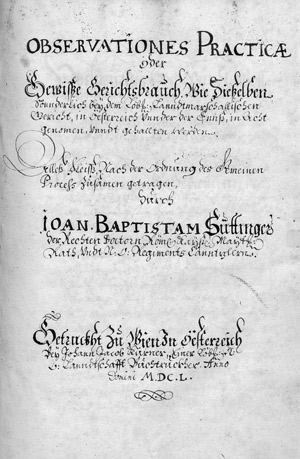 OBSERVATIONES PRACTICÆ
oder
Gewisse Gerichtsbrauch, Wie Dieselben
Sonderlich bey dem Löbl: Lanndtmarschallischen
Gericht, in Oesterreich Unnder der Ennß, in Acht
genomen, Unndt gehallten werden.
Alleß fleiß, Nach der Ordnung des Gemeinen
Process Zusamen getragen,
Durch
IOAN. BAPTISTAM Süttinger
der Rechten Doctorn, Röm: Kayß: Maytt:
Rath, Undt N: Ö: Regiments Canntzlern.
Getruckht Zu Wien In Oesterreich
Bey Johann Jacob Kürner, Einer Löbl:
Ö: Lanndtschafft Buchtruckher Anno
Domini M.DC.L.